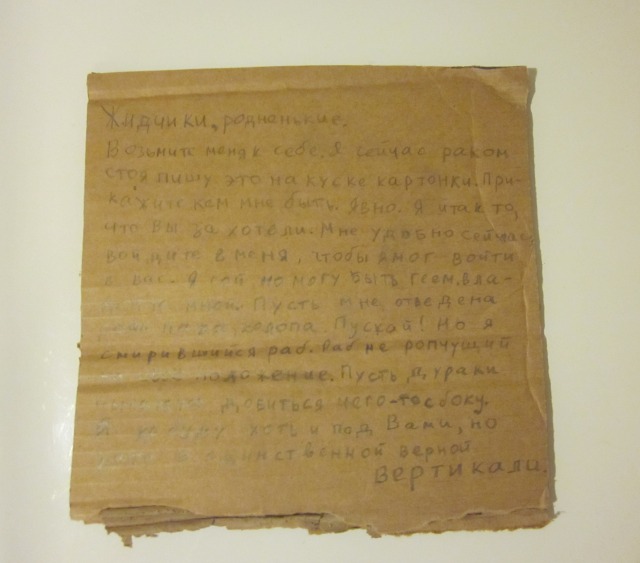 Жидчики, родненькие.
Возьмите меня к себе. Я сейчас раком
стоя пишу это на куске картонки. При-
кажите кем мне быть. Явно. Я и так то,
что Вы захотели. Мне удобно сейчас,
войдите в меня, чтобы я мог войти
в Вас. Я сам не могу быть всем. Вла-
мной. Пусть мне отведена
холопа. Пускай! Но я
смирившийся раб. Раб не ропчущий
положение. Пусть дураки
добиться чего-то сбоку.
Я хоть и под Вами, но
единственной верной
вертикали.